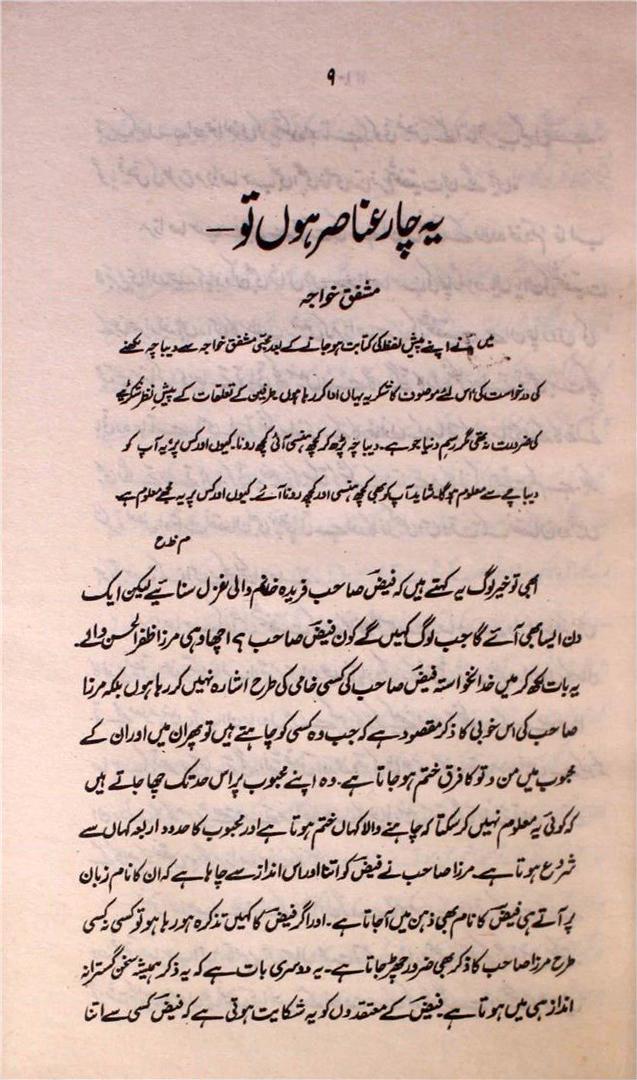 ۹
یہ چار عناصر ہوں تو —
مشفق خواجہ
میں نے اپنے پیش لفظ کی کتابت ہو جانے کے بعد محبّی مشفق خواجہ سے دیباچہ لکھنے
کی درخواست کی؛ اس لئے موصوف کا شکریہ یہاں ادا کر رہا ہوں۔ طرفین کے تعلقات کے پیشِ نظر شکریئے
کی ضرورت نہ تھی مگر رسمِ دنیا جو ہے۔ دیباچہ پڑھ کر کچھ ہنسی آئی کچھ رونا۔ کیوں اور کس پر؛ یہ آپ کو
دیباچے سے معلوم ہوگا۔ شاید آپ کو بھی کچھ ہنسی اور کچھ رونا آئے۔ کیوں اور کس پر یہ مجھے معلوم ہے۔
م ظ ح
ابھی تو خیر لوگ یہ کہتے ہیں کہ فیضؔ صاحب فریدہ خانم والی غزل سنائیے لیکن ایک
دن ایسا بھی آئے گا جب لوگ کہیں گے کون فیضؔ صاحب ؟ اچھا وہی مرزا ظفر الحسن والے۔
یہ بات لکھ کر میں خدانخواستہ فیضؔ صاحب کی کسی خامی کی طرح اشارہ نہیں کر رہا ہوں بلکہ مرزا
صاحب کی اس خوبی کا ذکر مقصود ہے کہ جب وہ کسی کو چاہتے ہیں تو پھر ان میں اور ان کے
محبوب میں من و تو کا فرق ختم ہو جاتا ہے۔ وہ اپنے محبوب پر اس حد تک چھا جاتے ہیں
کہ کوئی یہ معلوم نہیں کر سکتا کہ چاہنے والا کہاں ختم ہوتا ہے اور محبوب کا حدود اربعہ کہاں سے
شروع ہوتا ہے۔ مرزا صاحب نے فیضؔ کو اتنا اور اس انداز سے چاہا ہے کہ ان کا نام زبان
پر آتے ہی فیضؔ کا نام بھی ذہن میں آجاتا ہے۔ اور اگر فیضؔ کا کہیں تذکرہ ہو رہا ہو تو کسی نہ کسی
طرح مرزا صاحب کا ذکر بھی ضرور چھڑ جاتا ہے۔ یہ دوسری بات ہے کہ یہ ذکر ہمیشہ سخن گسترانہ
انداز ہی میں ہوتا ہے۔ فیضؔ کے معتقدوں کو یہ شکایت ہوتی ہے کہ فیضؔ کسی سے اتنا